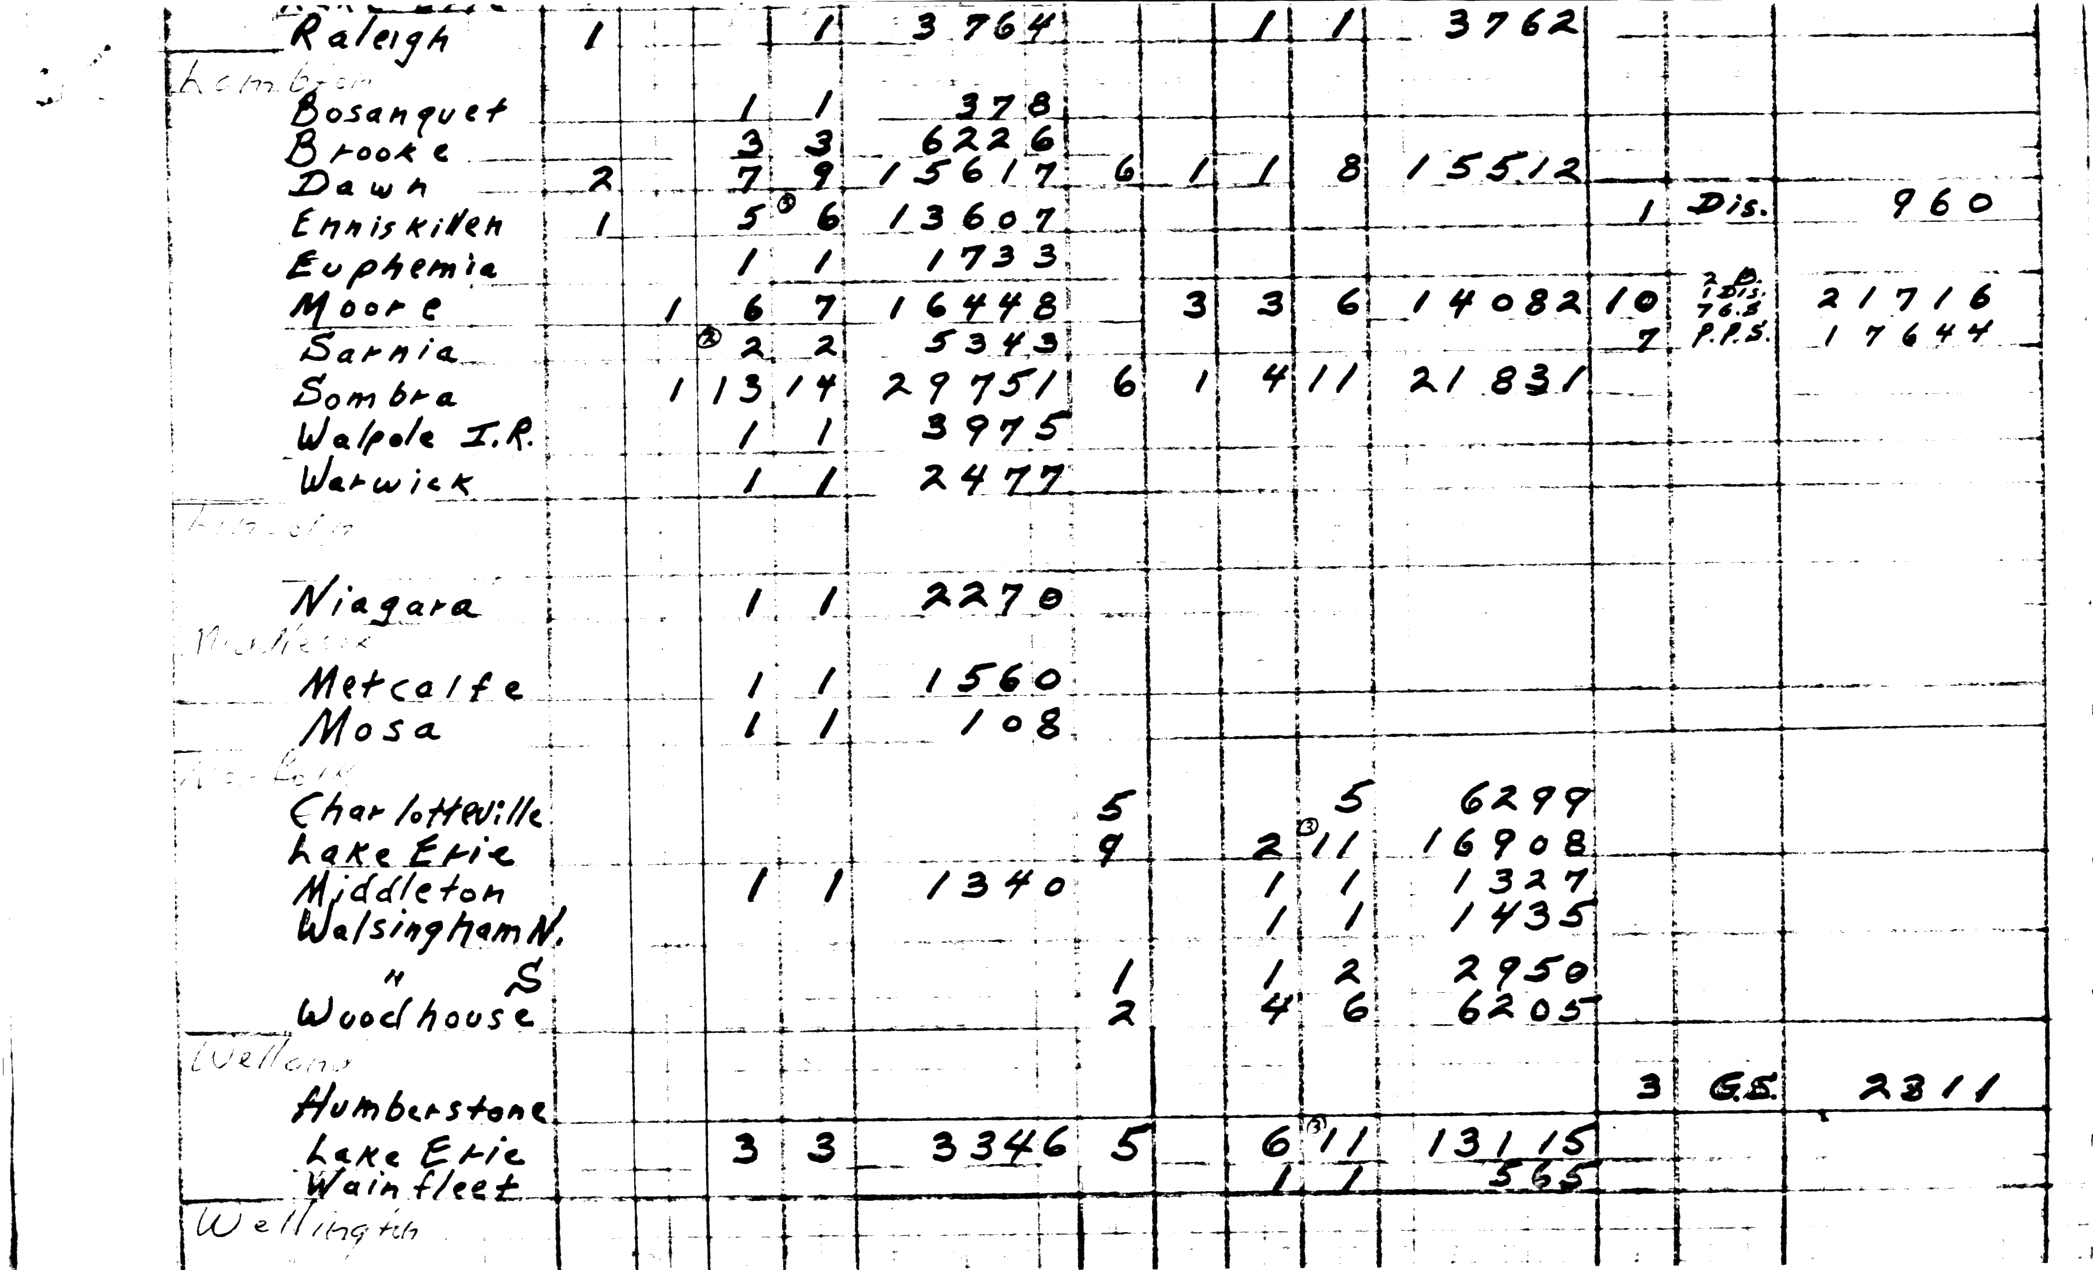 Raleigh 1 1 3764 1 1 3762
Lambton
Bosanquet 1 1 378
Brooke 3 3 6226
Dawn 2 7 9 15617 6 1 1 8 15512
Enniskillen 1 5 ③ 6 13607 1 Dis. 960
Euphemia 1 1 1733
Moore 1 6 7 16448 3 3 6 14082 10 1 Dis. 7 G.S 21716
Sarnia ② 2 2 5343 7 P.P.S. 17644
Sombra 1 13 14 29751 6 1 4 11 21831
Walpole I.R. 1 1 3975
Warwick 1 1 2477
Lincoln
Niagara 1 1 2270
Middlesex
Metcalfe 1 1 1560
Mosa 1 1 108
Norfolk
Charlotteville 5 5 6299
Lake Erie 9 2 ③ 11 16908
Middleton 1 1 1340 1 1 1327
Walsingham N. 1 1 1435
" S 1 1 2 2950
Woodhouse 2 4 6 6205
Welland
Humberstone 3 G.S. 2311
Lake Erie 3 3 3346 5 6 ③ 11 13115
Wainfleet 1 1 565
Wellington